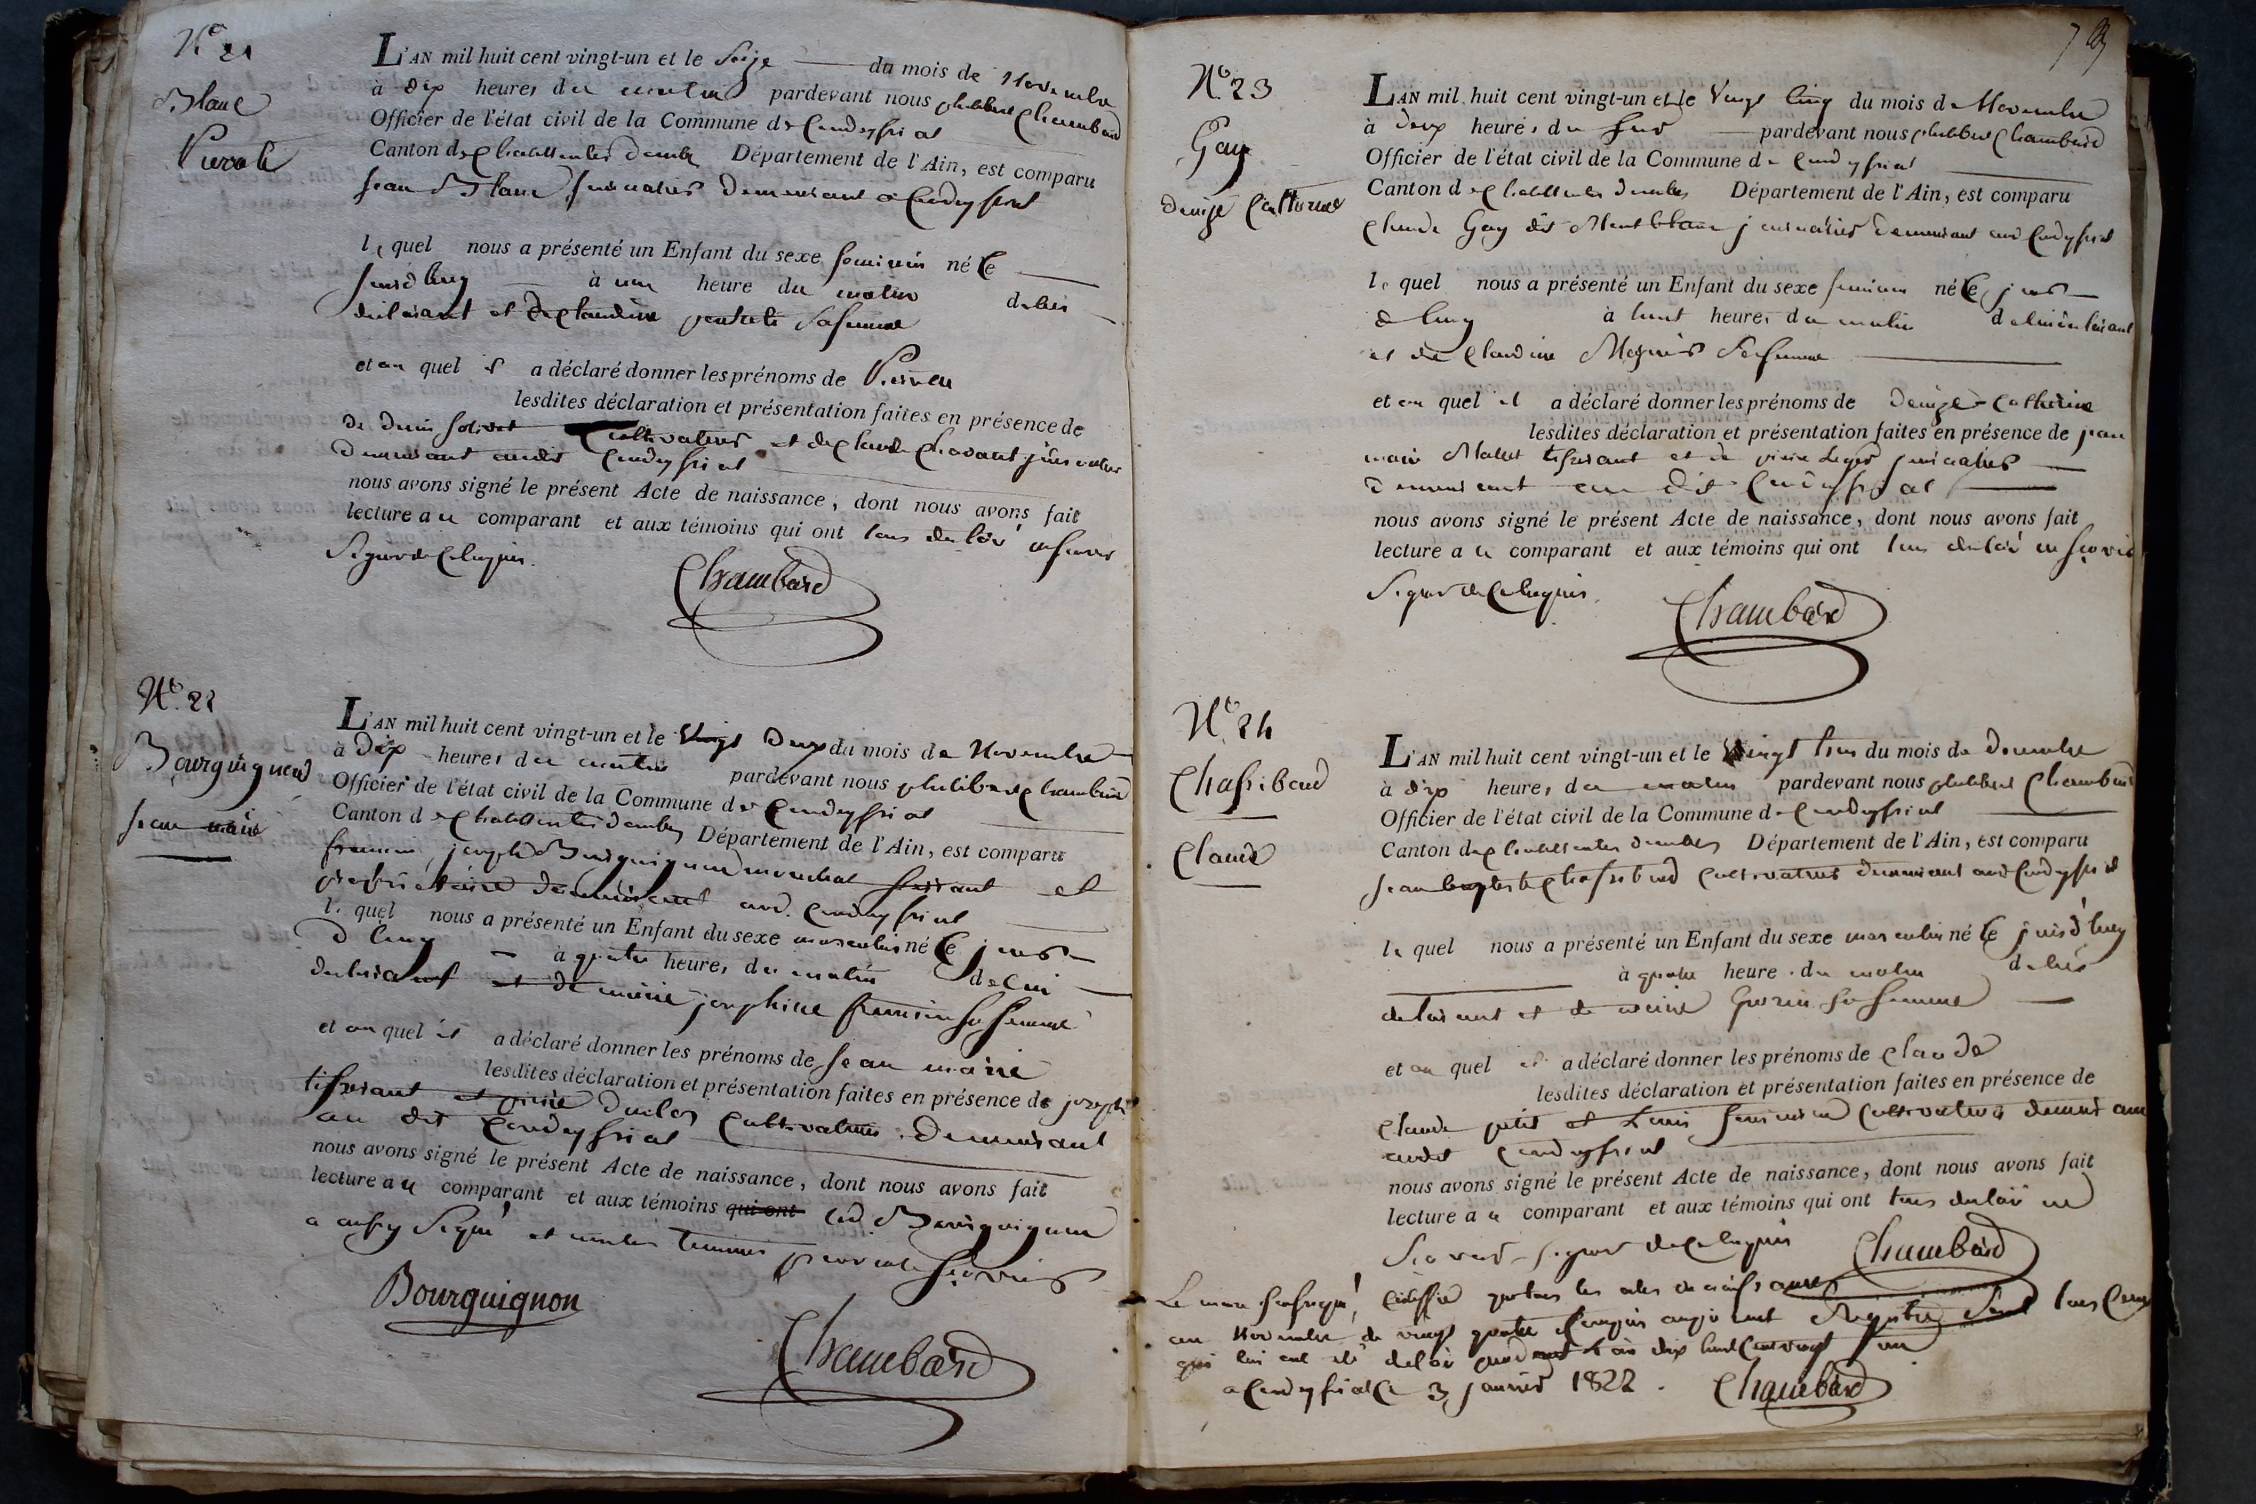 N° 21
Blanc
Pierrete
L'AN mil huit cent vingt-un et le Seize du mois de Novembre
à dix heures du matin pardevant nous philibert Chambard
Officier de l'état civil de la Commune de Condeyssiat
Canton de Chatillon les dombes Département de l'Ain, est comparu
jean Blanc journalier demeurant à Condeyssiat
le quel nous a présenté un Enfant du sexe feminin né le
jourd'huy à une heure du matin de lui
déclarant et de claudine sa femme
et au quel il a déclaré donner les prénoms de Pierrete
lesdites déclaration et présentation faites en présence de
de denis cultivateur et de claude journalier
demeurant audit Condeyssiat
nous avons signé le présent Acte de naissance, dont nous avons fait
lecture au comparant et aux témoins qui ont tous déclaré ne savoir
signer de ce requis.
Chambard
N° 22
Bourguignon
jean marie
L'AN mil huit cent vingt-un et le Vingt Deux du mois de Novembre
à Dix heures du matin pardevant nous philibert Chambard
Officier de l'état civil de la Commune de Condeyssiat
Canton de Chatillon les dombes Département de l'Ain, est comparu
joseph Bourguignon et
propriétaire demeurant aud. Condeyssiat
le quel nous a présenté un Enfant du sexe masculin né le jour
d'huy à quatre heures du matin de lui
déclarant et de marie josephine sa femme
et au quel il a déclaré donner les prénoms de jean marie
lesdites déclaration et présentation faites en présence de joseph
tisserant et pierre duclos cultivateur demeurant
au dit Condeyssiat
nous avons signé le présent Acte de naissance, dont nous avons fait
lecture au comparant et aux témoins qui ont led Bourguignon
a signé et non les temoins pour ne savoir
Bourguignon
Chambard
79
N° 23
Gay
denize Catherine
L'AN mil huit cent vingt-un et le Vingt Cinq du mois de Novembre
à deux heures du soir pardevant nous philibert Chambard
Officier de l'état civil de la Commune de Condeyssiat
Canton de Chatillon les dombes Département de l'Ain, est comparu
claude Gay dit Montblanc journalier demeurant aud Condeyssiat
le quel nous a présenté un Enfant du sexe feminin né le jour
d'huy à huit heures du matin de lui déclarant
et de claudine sa femme
et au quel il a déclaré donner les prénoms de denize Catherine
lesdites déclaration et présentation faites en présence de jean
marie Mallet tisserant et de pierre Leger journalier
demeurant au dit Condeyssiat
nous avons signé le présent Acte de naissance, dont nous avons fait
lecture au comparant et aux témoins qui ont tous déclaré ne savoir
signer de ce requis.
Chambard
N° 24
Chassiboud
Claude
L'AN mil huit cent vingt-un et le Vingt trois du mois de Decembre
à dix heures du matin pardevant nous philibert Chambard
Officier de l'état civil de la Commune de Condeyssiat
Canton de Chatillon les dombes Département de l'Ain, est comparu
jean baptiste Chassiboud cultivateur demeurant aud Condeyssiat
le quel nous a présenté un Enfant du sexe masculin né le jourd'huy
à quatre heure du matin de lui
déclarant et de marie sa femme
et au quel il a déclaré donner les prénoms de claude
lesdites déclaration et présentation faites en présence de
claude petit et Louis cultivateurs demeurant
audit Condeyssiat
nous avons signé le présent Acte de naissance, dont nous avons fait
lecture au comparant et aux témoins qui ont tous déclaré ne
savoir signer de ce requis
Chambard
Le maire soussigné, certifie que tous les actes de naissances
au nombre de vingt quatre au présent Registre sont tous ceux
qui lui ont été déclaré pendant l'an dix huit cent vingt un
a Condeyssiat le 3 janvier 1822.
Chambard